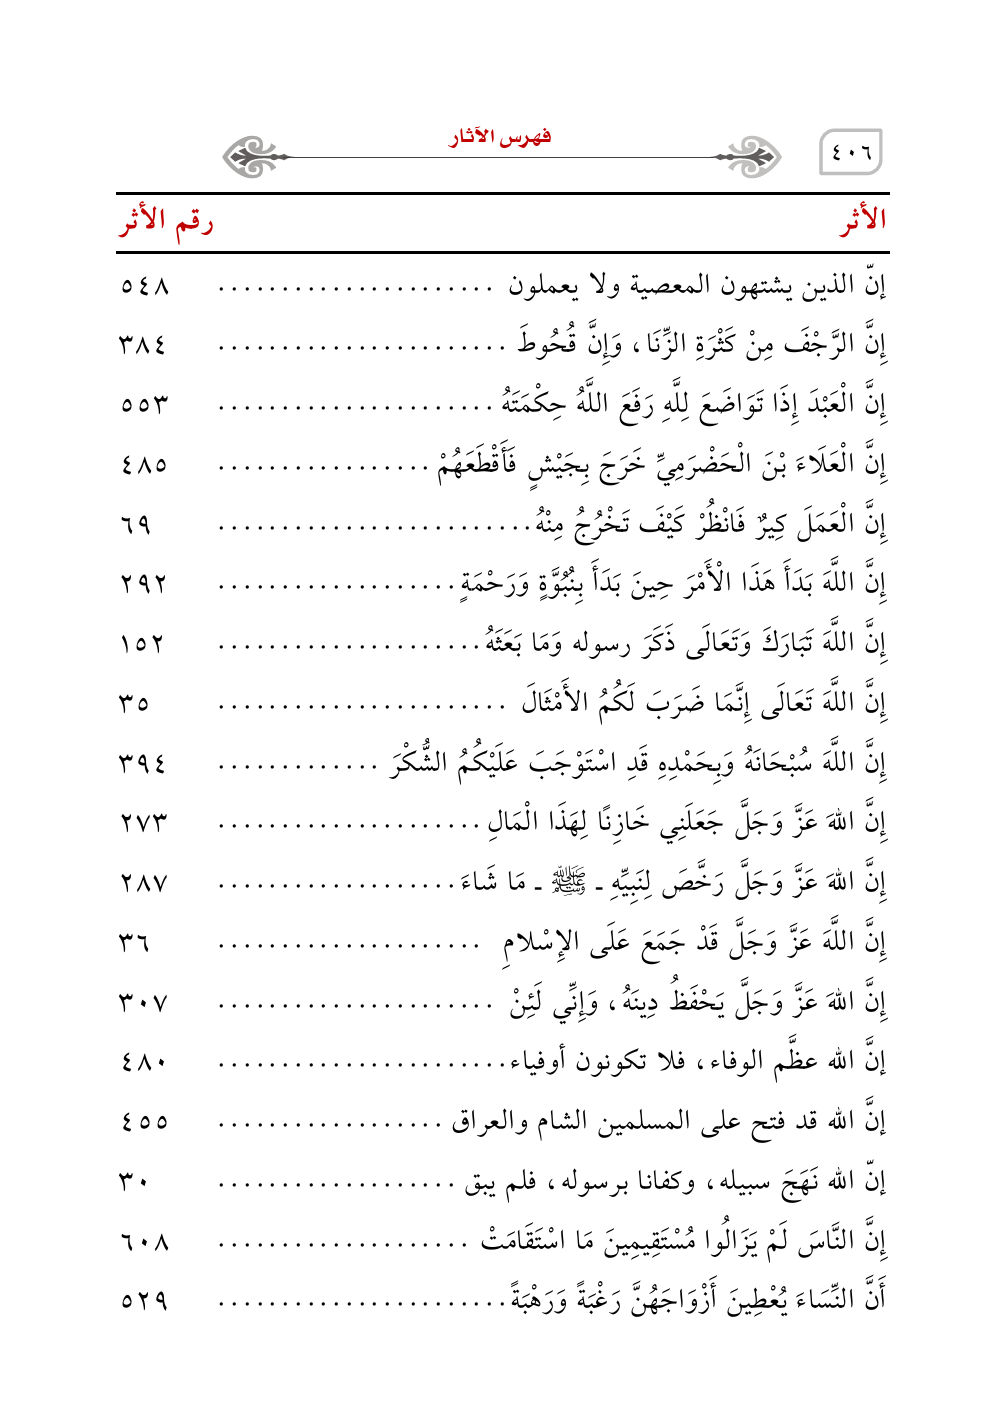 ٤٠٦
فهرس الآثار
الأثر رقم الأثر
إنّ الذين يشتهون المعصية ولا يعملون ...................... ٥٤٨
إِنَّ الرَّجْفَ مِنْ كَثْرَةِ الزِّنَا، وَإِنَّ قُحُوطَ ....................... ٣٨٤
إِنَّ الْعَبْدَ إِذَا تَوَاضَعَ لِلَّهِ رَفَعَ اللَّهُ حِكْمَتَهُ ...................... ٥٥٣
إِنَّ الْعَلَاءَ بْنَ الْحَضْرَمِيِّ خَرَجَ بِجَيْشٍ فَأَقْطَعَهُمْ ................. ٤٨٥
إِنَّ الْعَمَلَ كِيرٌ فَانْظُرْ كَيْفَ تَخْرُجُ مِنْهُ ......................... ٦٩
إِنَّ اللَّهَ بَدَأَ هَذَا الْأَمْرَ حِينَ بَدَأَ بِنُبُوَّةٍ وَرَحْمَةٍ ................... ٢٩٢
إِنَّ اللَّهَ تَبَارَكَ وَتَعَالَى ذَكَرَ رسوله وَمَا بَعَثَهُ ..................... ١٥٢
إِنَّ اللَّهَ تَعَالَى إِنَّمَا ضَرَبَ لَكُمُ الأَمْثَالَ ....................... ٣٥
إِنَّ اللَّهَ سُبْحَانَهُ وَبِحَمْدِهِ قَدِ اسْتَوْجَبَ عَلَيْكُمُ الشُّكْرَ ............. ٣٩٤
إِنَّ اللهَ عَزَّ وَجَلَّ جَعَلَنِي خَازِنًا لِهَذَا الْمَالِ ..................... ٢٧٣
إِنَّ اللهَ عَزَّ وَجَلَّ رَخَّصَ لِنَبِيِّهِ ـ ﷺ ـ مَا شَاءَ ................... ٢٨٧
إِنَّ اللَّهَ عَزَّ وَجَلَّ قَدْ جَمَعَ عَلَى الإِسْلامِ ..................... ٣٦
إِنَّ اللهَ عَزَّ وَجَلَّ يَحْفَظُ دِينَهُ، وَإِنِّي لَئِنْ ...................... ٣٠٧
إنَّ الله عظَّم الوفاء، فلا تكونون أوفياء ....................... ٤٨٠
إنَّ الله قد فتح على المسلمين الشام والعراق .................. ٤٥٥
إنّ الله نَهَجَ سبيله، وكفانا برسوله، فلم يبق ................... ٣٠
إِنَّ النَّاسَ لَمْ يَزَالُوا مُسْتَقِيمِينَ مَا اسْتَقَامَتْ .................... ٦٠٨
أَنَّ النِّسَاءَ يُعْطِينَ أَزْوَاجَهُنَّ رَغْبَةً وَرَهْبَةً ....................... ٥٢٩